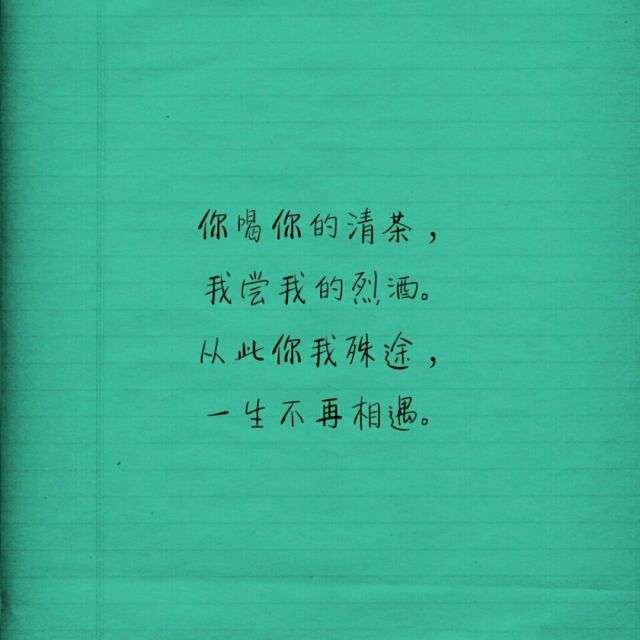 你喝你的清茶，
我尝我的烈酒。
从此你我殊途，
一生不再相遇。